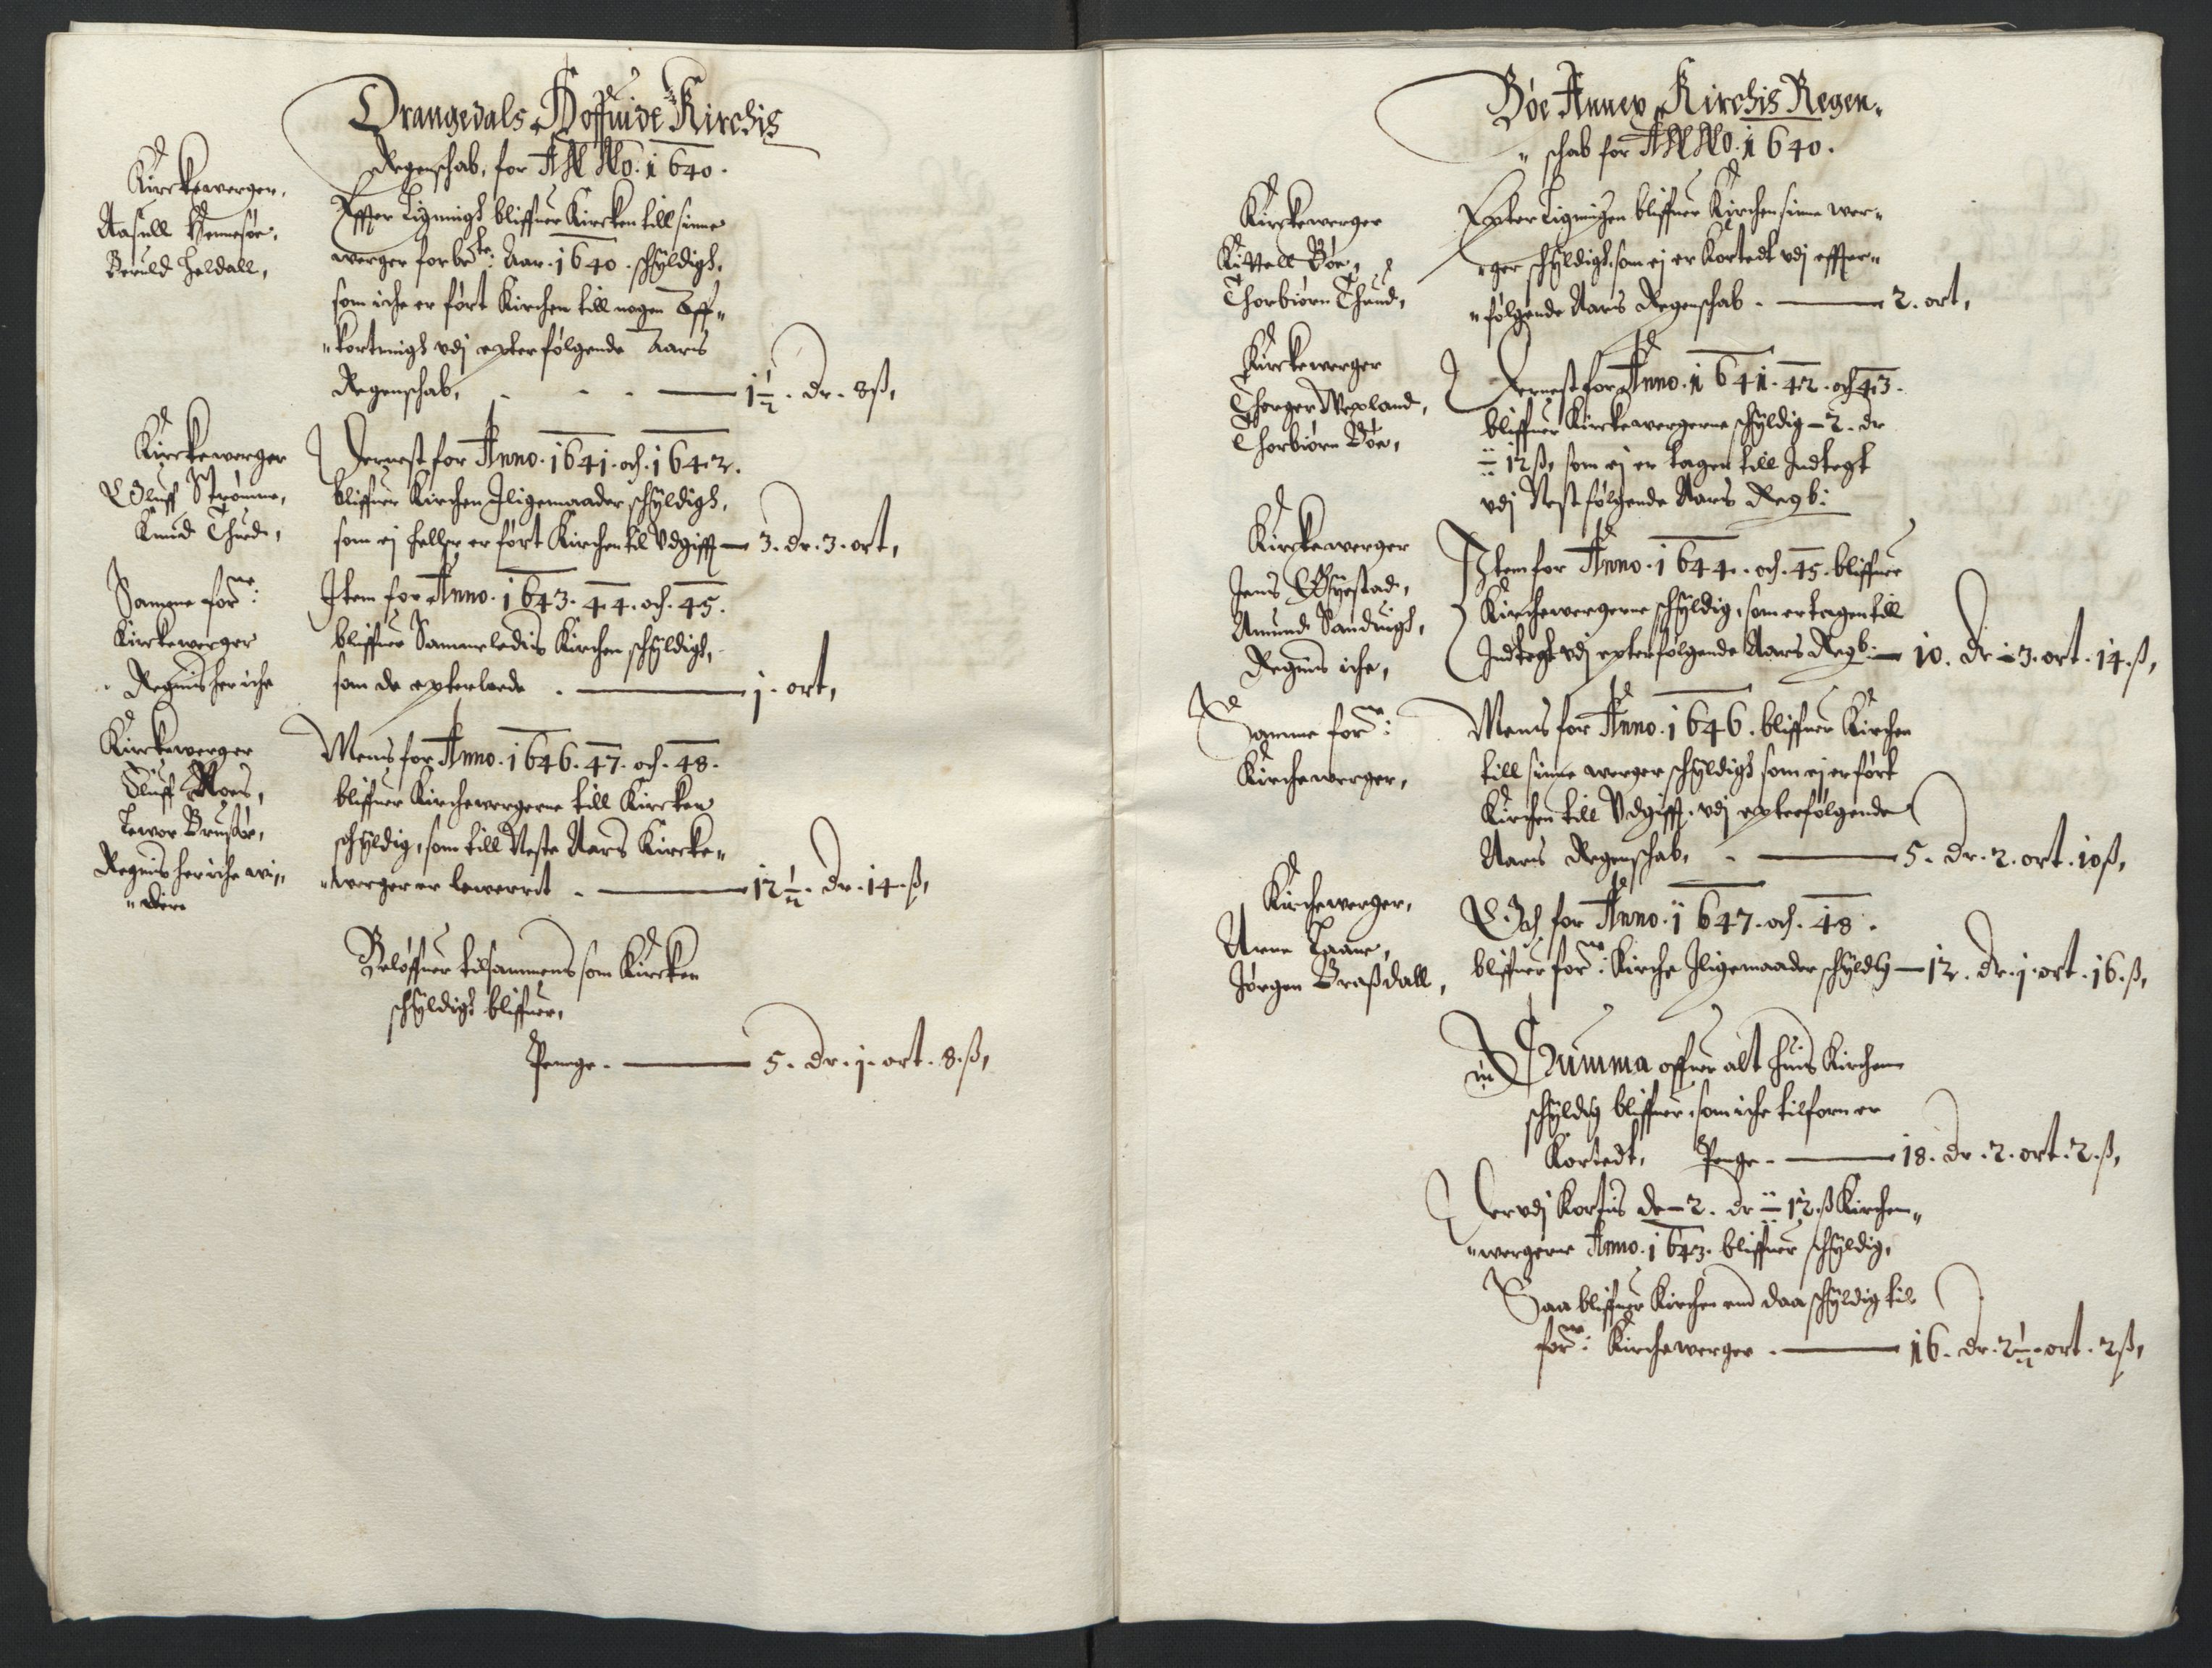 Drangedals Hoffuide Kirchis
Regenschab, for ANNO. 1640.
Kirckewerger,
Aasull
Beruld
Effter Ligningh bliffuer Kircken till sinne
werger forbete: Aar. 1640. schyldigh,
som iche er ført Kirchen till nogen Aff„
„kortningh udj epterfølgende Aars
Regenschab, - - - 1½. dr. 8 ß,
Kirckewerger
Oluff Strømme,
Knud
Dernest for Anno. 1641. och. 1642.
bliffuer Kirchen Iligemaader schyldigh,
som ej heller er ført Kirchen til Udgifft — 3. dr. 3. ort,
Samme forne:
Kirckewerger
Regnis her iche
Item for Anno. 1643. 44. och. 45.
bliffuer Sammeledis Kirchen schyldigh,
som da epterloede . — j. ort,
Kirckewerger
Oluff Moes,
Tewor
Regnis her iche wi„
„dere
Mens for Anno. 1646. 47. och. 48.
bliffuer Kirchewergerne till Kircken
schyldig, som till Neste Aars Kircke„
„werger er lewerrit . — 12½. dr. 14. ß,
Beløffuer tilsammens som Kircken
schyldigh bliffuer,
Penge . — 5. dr. j. ort. 8. ß,
Bøe Annex Kirchis Regen„
„schab for ANNO. 1640.
Kirckewerger
Kittell Bøe,
Thorbiørn
Epter Ligningen bliffuer Kirchen sinne wer„
„ger schyldigh, som ej er Kortedt udj effter„
„følgende Aars Regenschab . — 2. ort,
Kirckewerger
Thorger
Thorbiørn Bøe,
Dernest for Anno. 1641. 42. och 43.
bliffuer Kirckewergerne schyldig — 2. dr
12 ß, som ej er tagen till Indtegt
udj Nestfølgende Aars Regb:
Kirckewerger
Jens
Amund Sandwigh,
Regnis iche,
Item for Anno. 1644. och. 45. bliffuer
Kirchewergerne schyldig, som er tagen till
Indtegt udj epterfølgende Aars Regb: — 10. dr 3. ort. 14. ß,
Samme forne:
Kirchewerger,
Mens for Anno. 1646. bliffuer Kirchen
till sinne werger schyldigh som ej er ført
Kirchen till Udgifft. udj epterfølgende
Aars Regenschab, - — 5. dr. 2. ort. 10 ß,
Kirchewerger,
Arne
Jørgen
Och for Anno. 1647. och. 48.
bliffuer forne: Kirche Iligemaader schyldig — 12. dr. j. ort. 16. ß,
Summa offuer alt huis Kirchen
schyldig bliffuer, som iche tilforn er
Kortedt, Penge - — 18. dr. 2. ort. 2. ß,
Der udj Kortis de — 2. dr 12. ß Kirchen„
„wergerne Anno. 1643. bliffuer schyldig,
Saa bliffuer Kirchen end daa schyldig til
forne: Kirchewerger . — 16. dr. 2½. ort. 2 ß,